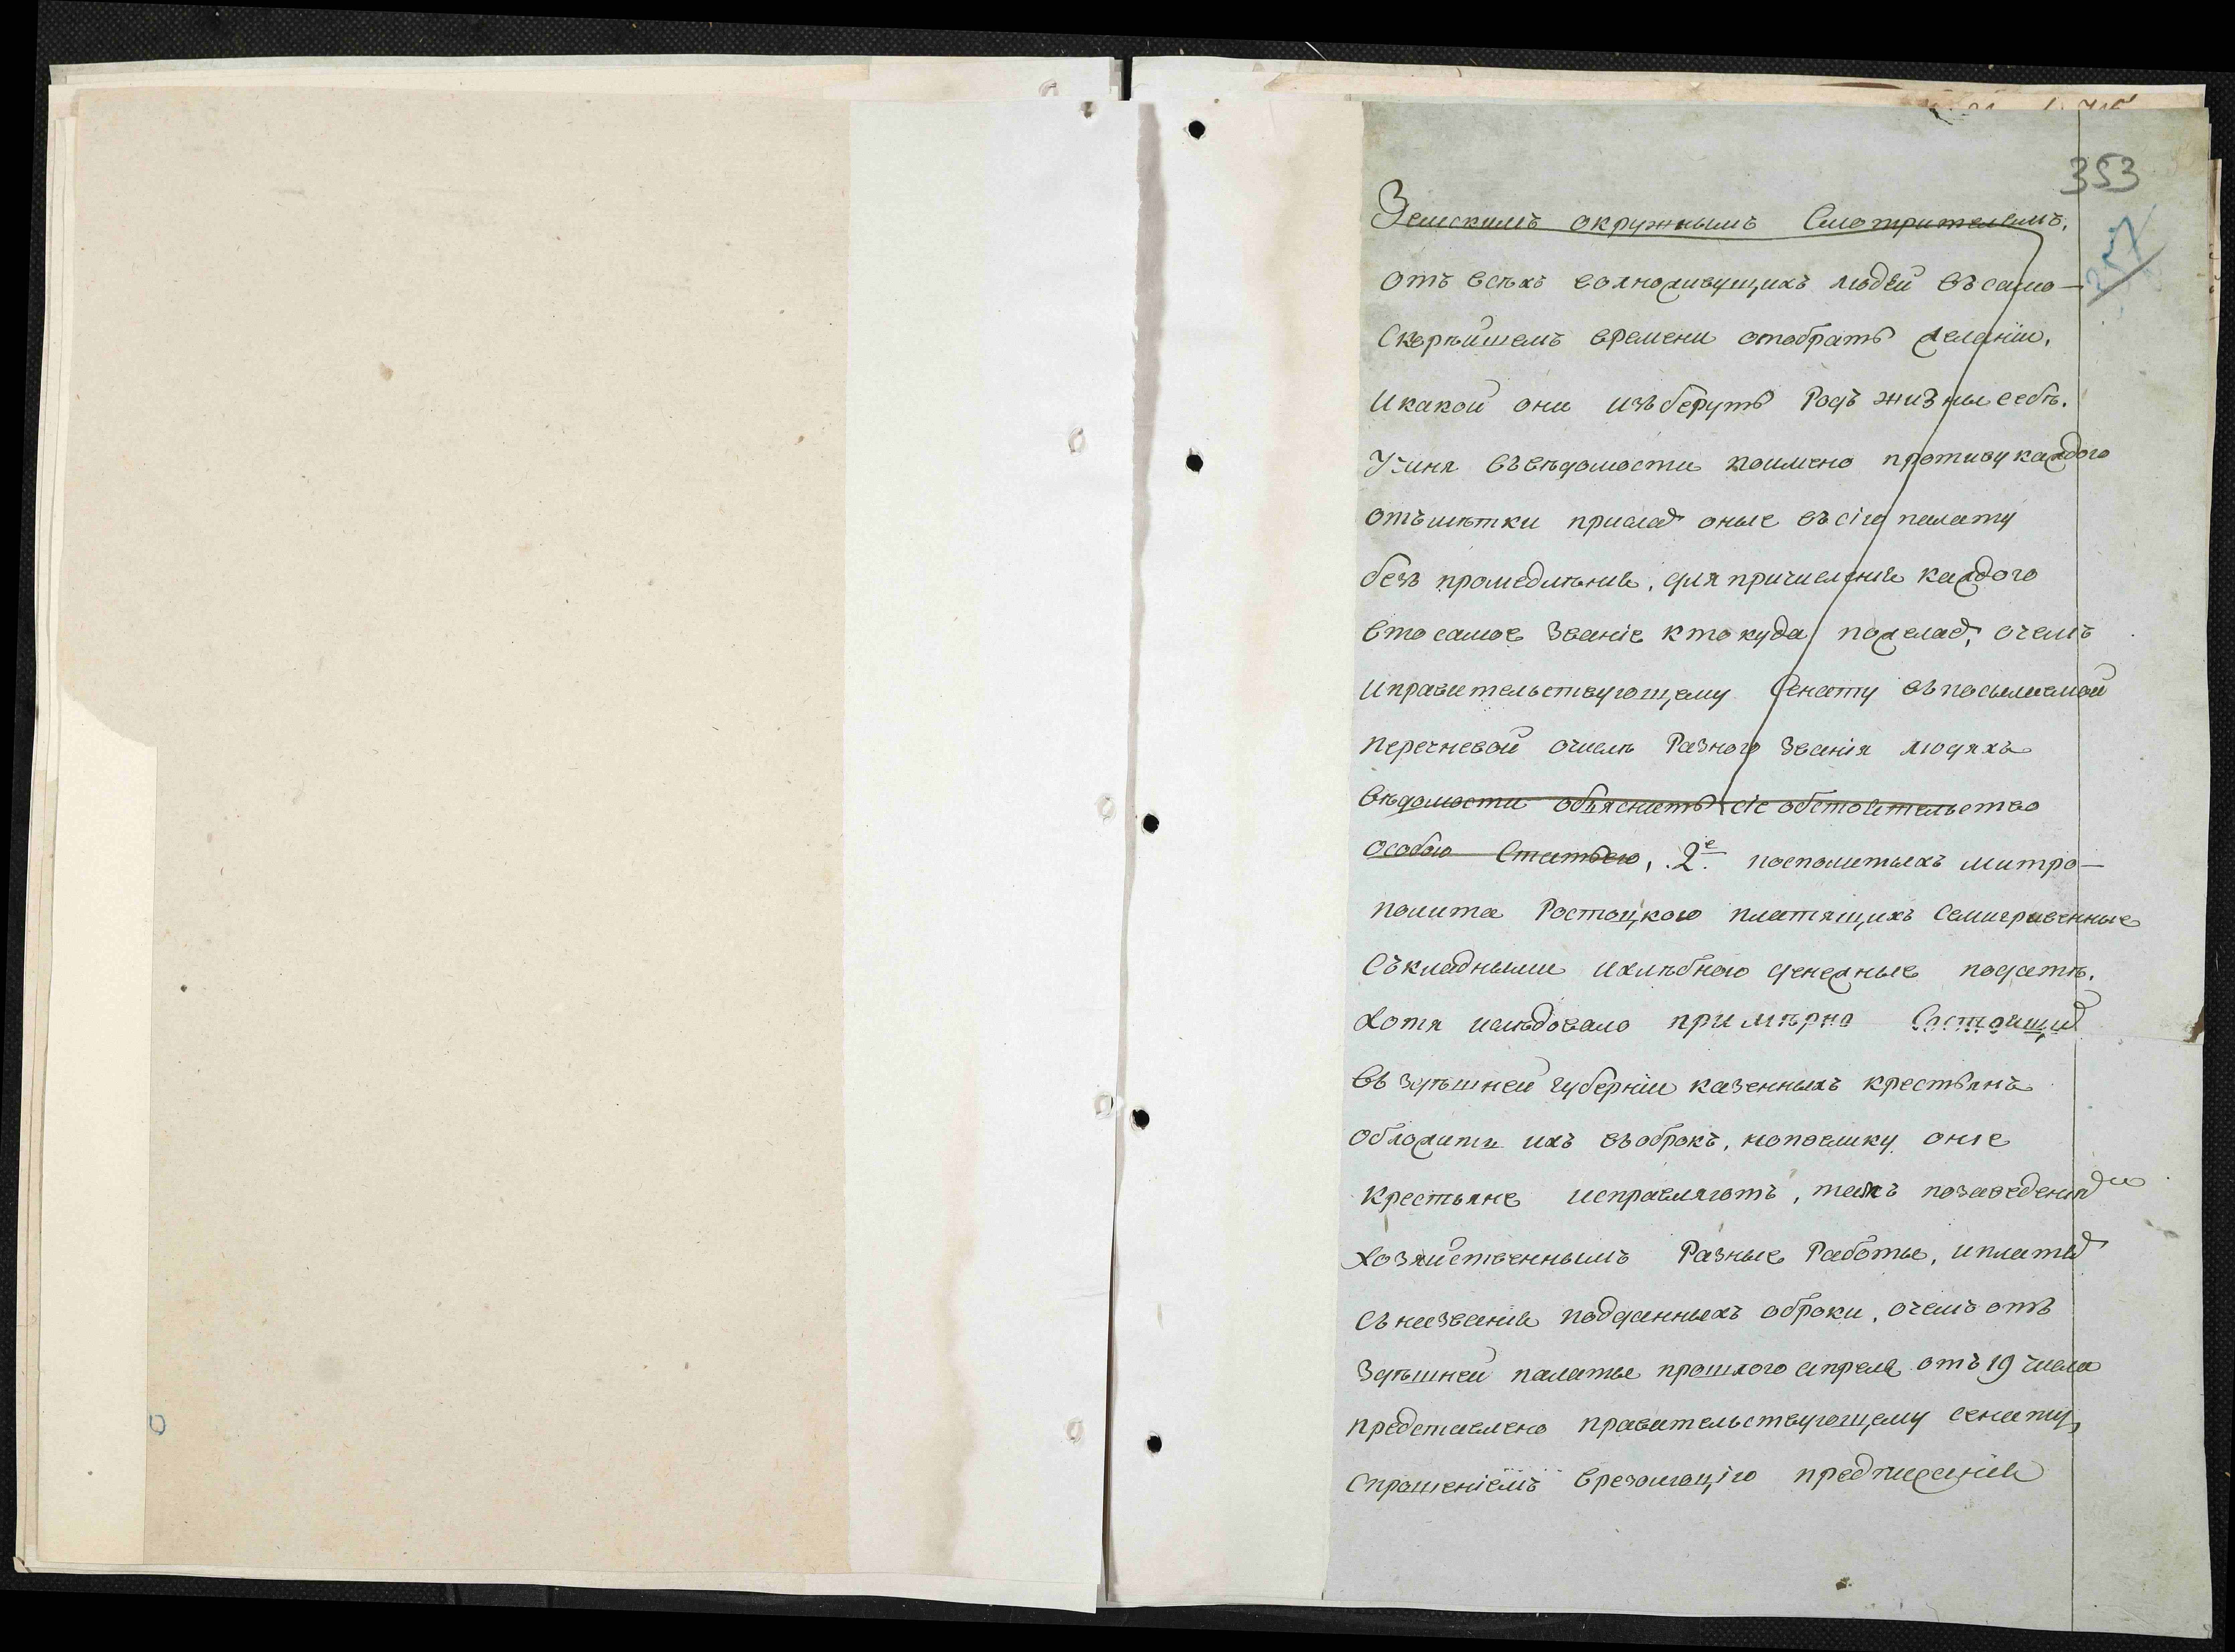 353
257
Земскимъ окружнымъ Смотрителемъ,
отъ всѣхъ волноживущихъ людей въ само-
скорѣйшемъ времени отобрать желаніи,
и какой они изъберутъ Родъ жизни себѣ.
Учиня въ вѣдомости поимено противу каждого
отъмѣтки прислать оные въ сію палату
безъ промедлѣние, для причисление каждого
в то самое Званіе кто куда пожелает, очемъ
и правительствующему Сенату въ посылаемой
перечневой очислѣ Разного Званія людяхъ
вѣдомости объяснить сіе обстоятельство
особою Статьею, 2е. посполитыхъ митро-
полита Ростоцкого платящихъ семигривенные
съ кладными и хлѣбного денежные податѣ,
хотя и слѣдовало примѣрно Состоящих
въ здѣшней губерніи казенныхъ крестьянъ
обложить ихъ въ оброкъ, но поелику оніе
крестьяне исправляютъ, такъ по заведениям
хозяйственнымъ Разные Работы, и платят
съ названия подданныхъ оброки, очемъ отъ
здѣшней палаты прошлого апреля отъ 19 числа
представлено правительствующему сенату,
с прошеніемъ в резолюцію предписания